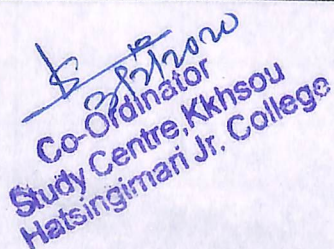 Co-Ordinator
Study Centre, Kkhsou
Hatsingimari Jr. College